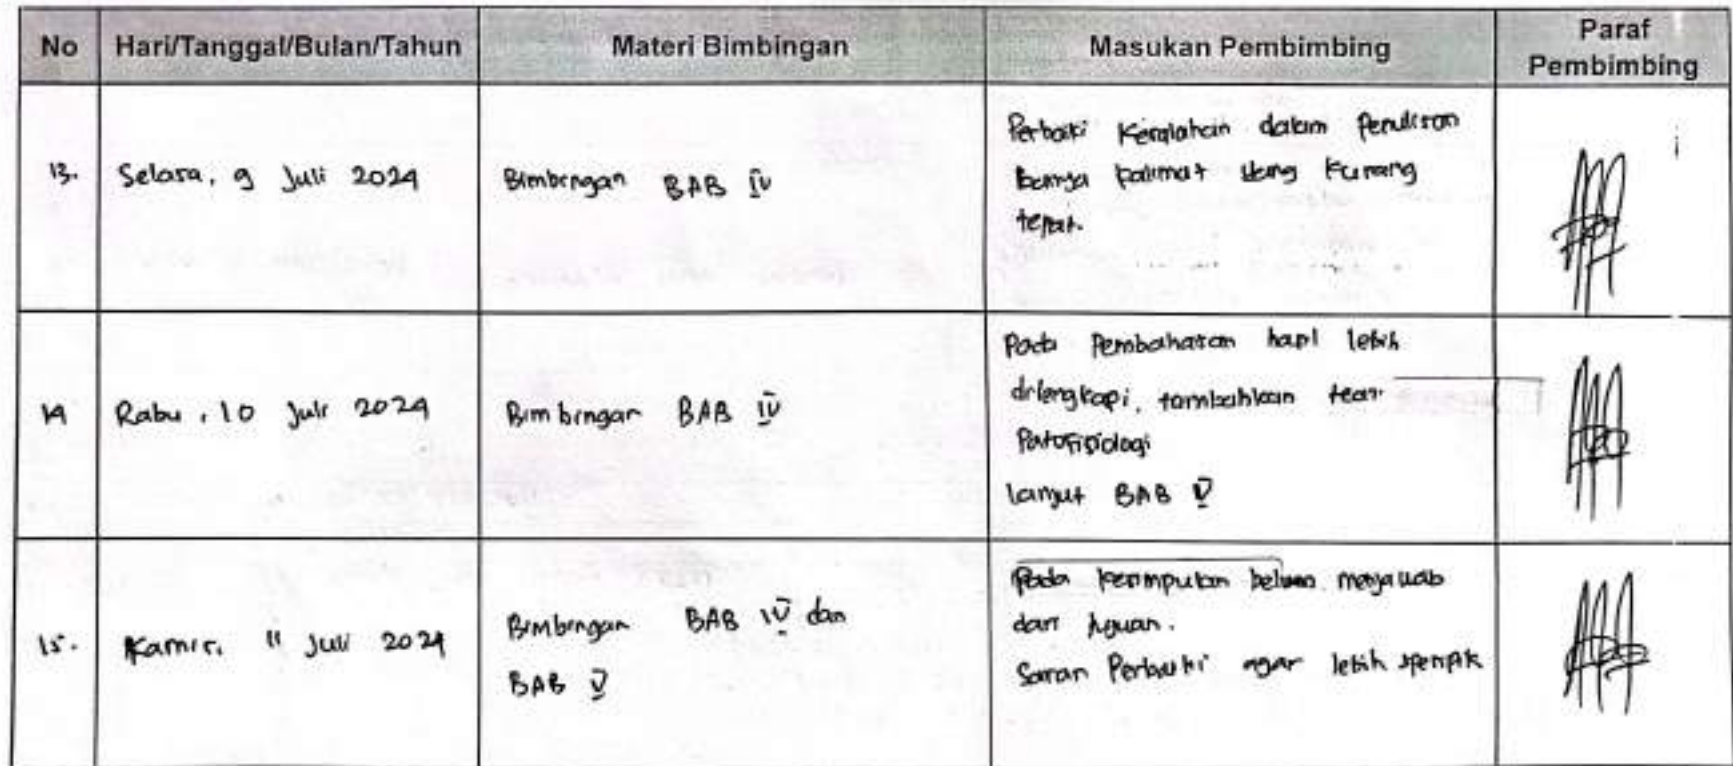 No Hari/Tanggal/Bulan/Tahun Materi Bimbingan Masukan Pembimbing Paraf Pembimbing
13. Selasa, 9 Juli 2024
Bimbingan BAB IV
Perbaiki Kesalahan dalam Penulisan
banya kalimat yang kurang
tepat.
14 Rabu, 10 Juli 2024
Bimbingan BAB IV
Pada Pembahasan hasil lebih
dilengkapi, tambahkan teori
Patofisiologi
lanjut BAB V
15. Kamis, 11 Juli 2024
Bimbingan BAB IV dan
BAB V
Pada kesimpulan belum menjawab
dari tujuan.
Saran Perbaiki agar lebih spesifik